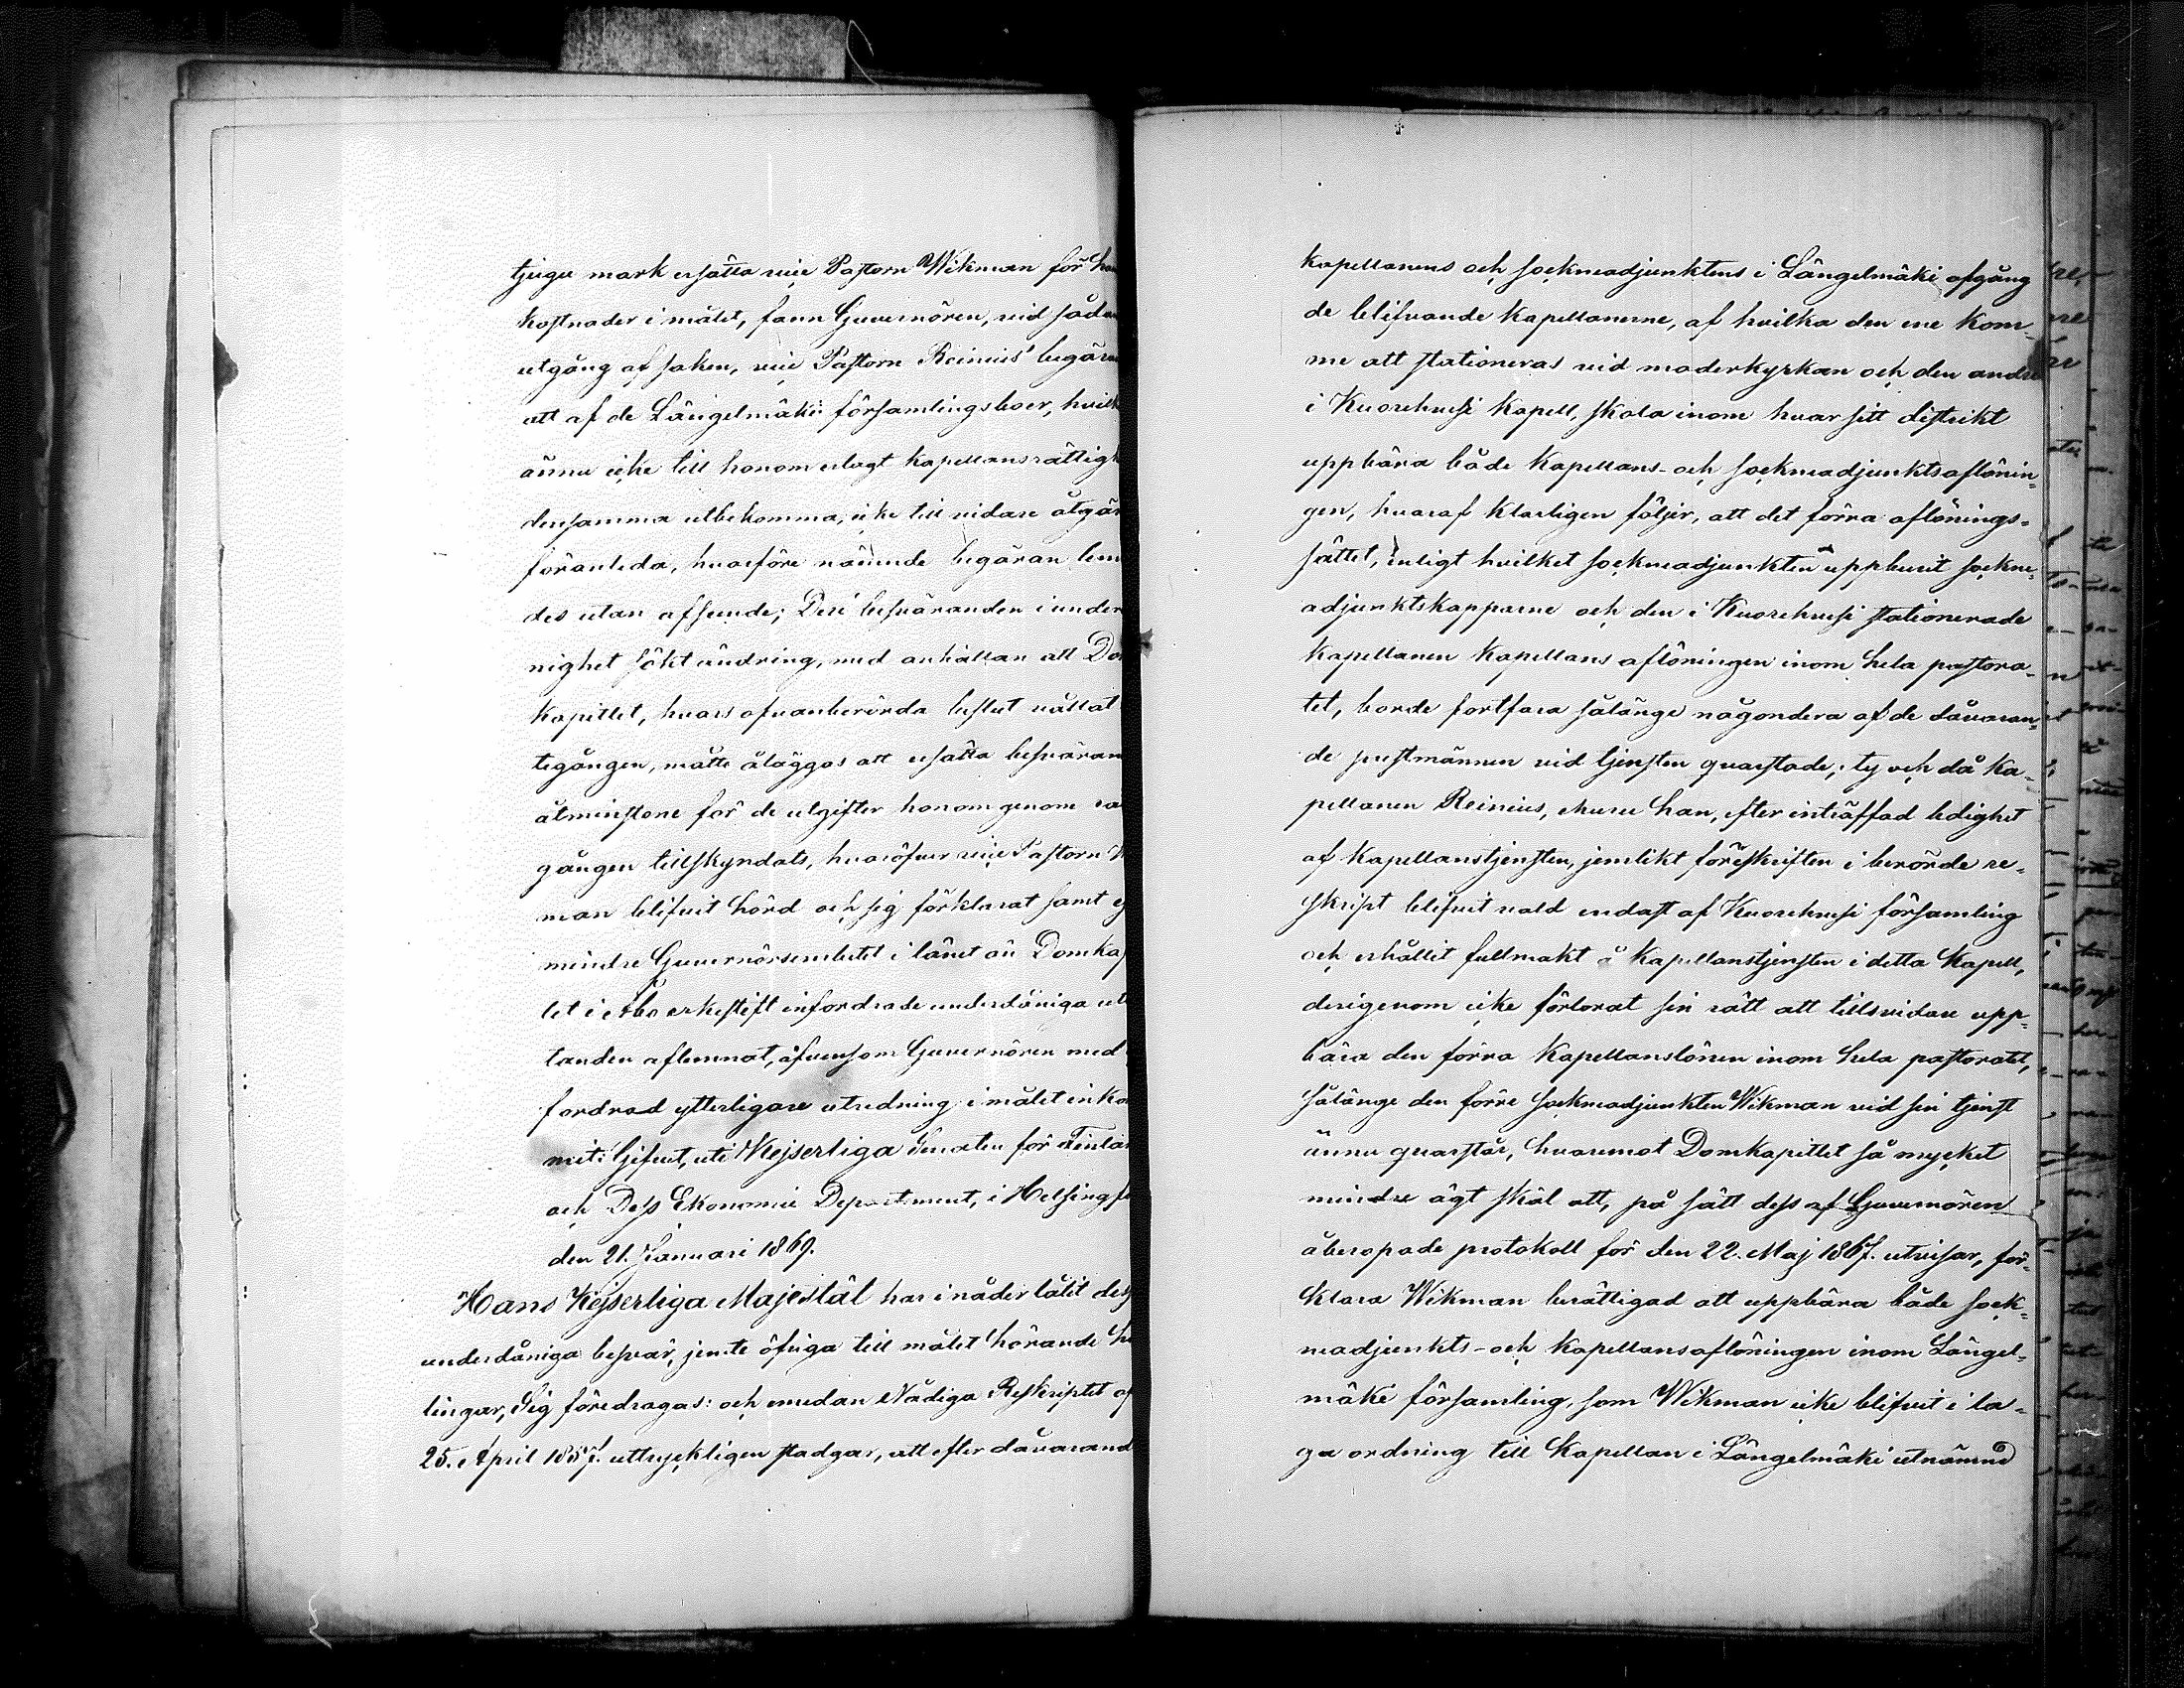 tjugu mark ersätta vice Pastorn Wikman för ha
kostnader i målet, fann Guvernören, vid såda
utgång af saken, vice Pastorn Reinius' begära
att af de Längelmäki församlingsboer, hvilk
ännu icke till honom erlagt kapellansrättigh
densamma utbekomma, icke till vidare åtgär
föranleda, hvarföre nämnde begäran lem
des utan afseende; Deri besväranden i under
nighet sökt ändring, med anhållan att Do
Kapitlet, hvars ofvanberörda beslut vållat
tegången, måtte åläggas att ersätta besväran
åtminstone för de utgifter honom genom rä
gången tillskyndats, hvaröfver vice Pastorn W
man blifvit hörd och sig förklarat samt ej
mindre Guvernörsembetet i länet än Domkap
let i Åbo erkestift infordrade underdåniga ut
landen aflemnat, äfvensom Guvernören med
fordrad ytterligare utredning i målet inkom
mit: Gifvet, uti Kejserliga Senaten för Finlan
och Dess Ekonomie Departement, i Helsingfo
den 21. Januari 1869.
Hans Kejserliga Majestät har i nåder låtit dess
underdåniga besvär, jemte öfriga till målet hörande ha
lingar, Sig föredragas: och emedan Nådiga Reskriptet af
25. April 1857. uttryckligen stadgar, att efter dåvarand
kapellanens och sockneadjunktens i Längelmäki afgång
de blifvande Kapellanerne, af hvilka den ene kom¬
me att stationeras vid moderkyrkan och den andre
i Kuorehvesi Kapell, skola inom hvar sitt distrikt
uppbära både Kapellans- och sockneadjunktsaflönin¬
gen, hvaraf klarligen följer, att det förra aflönings¬
sättet, enligt hvilket sockneadjunkten uppburit sockne¬
adjunktskapparne och den i Kuorehvesi stationerade
Kapellanen Kapellans aflöningen inom hela pastora¬
tet, borde fortfara sålänge någondera af de dåvaran¬
de prestmännen vid tjensten qvarstode; ty och då Ka¬
pellanen Reinius, ehuru han, efter inträffad ledighet
af Kapellanstjensten, jemlikt föreskriften i berörde re¬
skript blifvit vald endast af Kuorehvesi församling
och erhållit fullmakt å Kapellanstjensten i detta Kapell,
derigenom icke förlorat sin rätt att tillsvidare upp¬
bära den förra Kapellanslönen inom hela pastoratet,
sålänge den förre sockneadjunkten Wikman vid sin tjenst
ännu qvarstår, hvaremot Domkapitlet så mycket
mindre ägt skäl att, på sätt dess af Guvernören
åberopade protokoll för den 22. Maj 1867. utvisar, för¬
klara Wikman berättigad att uppbära både sock¬
neadjunkts- och Kapellansaflöningen inom Längel¬
mäki församling, som Wikman icke blifvit i la¬
ga ordning till Kapellan i Längelmäki utnämnd